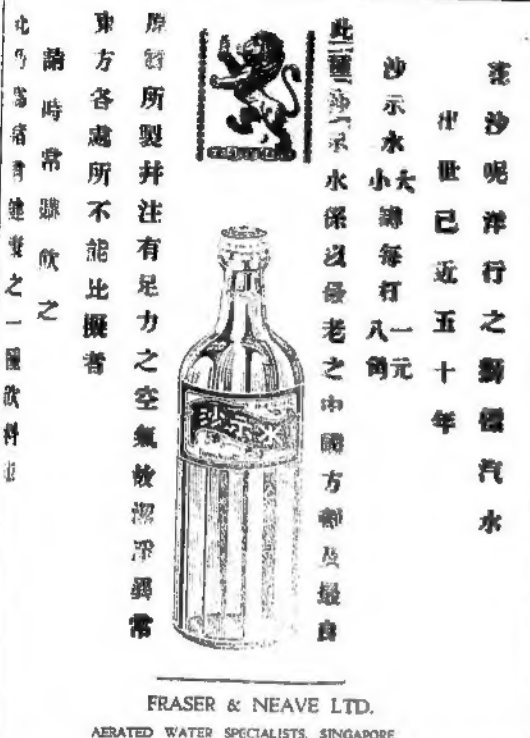 沙呢洋行之新價汽水
出世已近五十年
沙示水大小罇每打一元八角
此種沙示水係以最老之中國方劑及最良
原料所製并注有足力之空氣故潔淨異常
東方各處所不能比擬者
請時常購飲之
之一種飲料
沙示水
FRASER & NEAVE LTD.
AERATED WATER SPECIALISTS, SINGAPORE